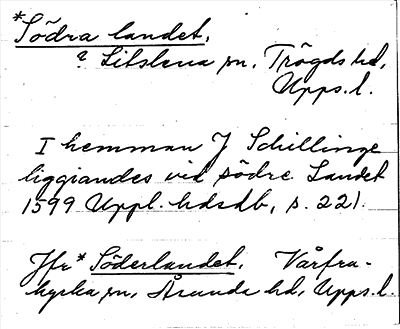 *Södra landet,
? Litslena sn, Trögds hd,
Upps. l.
I hemman J Schillinge
liggiandes vid södre Landet
1599 Uppl. hdsdb, s. 221.
Jfr *Söderlandet, Vårfru-
kyrka sn, Åsunda hd, Upps. l.